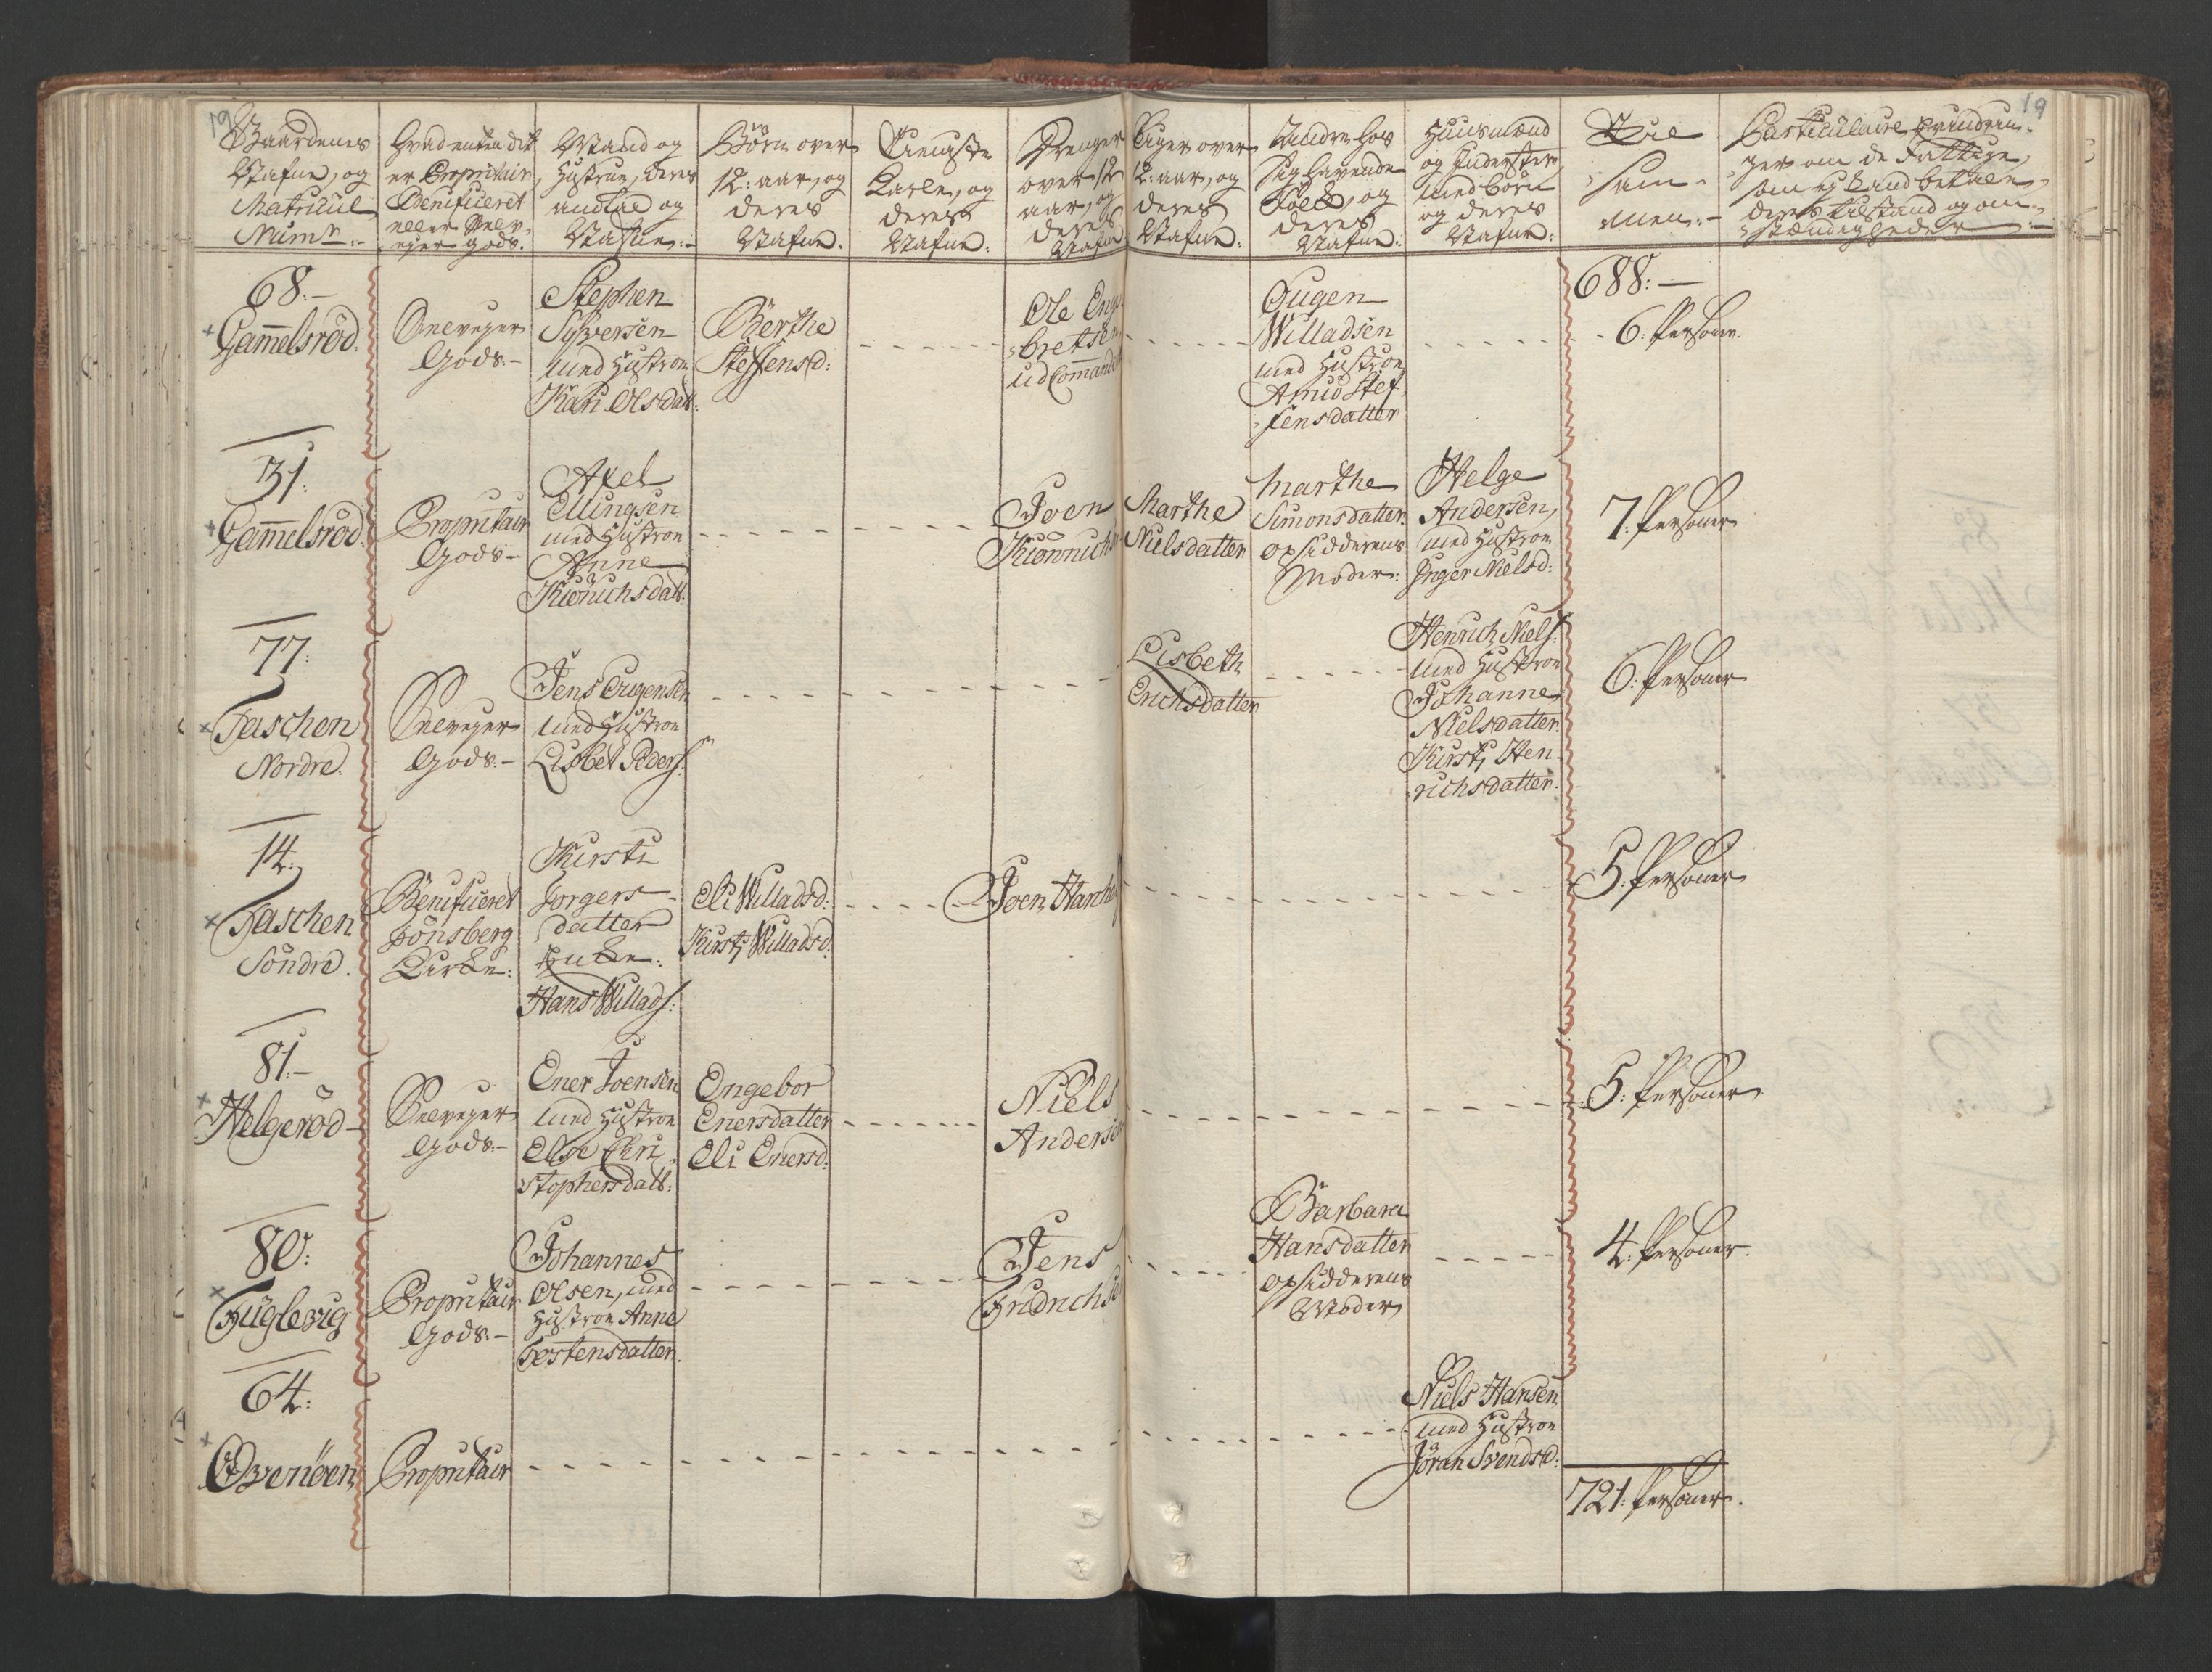 19
Gaardenes
Nafne, og
Matricul
Num:
Hvad enten det
er Propritair,
Benificeret
eller Selv-
eyer gods.
Mand og
Hustrue, deres
andtal og
Nafne:
Børn over
12: aar, og
deres
Nafne.
Tieniste
Karle, og
deres
Nafne:
Drenger
over 12
aar, og
deres
Nafne
Piger over
12: aar, og
deres
Nafne:
Andre hos
sig havende
Folck, og
deres
Nafne:
Huusmænd
og Inderster,
med børn
og deres
Nafne:
Til
sam-
men:
19
Particulaire
ger om de Fattige,
som ej kand betale,
deres tilstand og om-
stændigheder
68:
Gam̅elsrød.
Selveyer
Gods.
Stephen
Syversen
med Hustroe
Kari Olsdatt:
Berthe
Steffensd:
Ole Eng-
bretsen
ud Com̅ander
Ougen
Willadsen
med Hustroe
Stef-
fensdatter
688:
6: Persohner.
31:
Gam̅elsrød.
Propritair
Gods
Axel
Ellingsen
med Hustroe
Anne
Kiønichsdatt:
Joen
Kiønnichs
Marthe
Nielsdatter
Marthe
Simonsdatter
opsidderens
Moder:
Helge
Andersen,
med Hustroe
Inger Nielsd:
7: Persohner
77:
Taschen
Nordre.
Selveyer
Gods.
Jens Ougensen
med Hustroe
Lisbet Peders:
Lisbeth
Erichsdatter
Henrich Niels:
med Hustroe
Johanne
Nielsdatter.
Kirsti Hen-
richsdatter.
6: Persohner
14:
Taschen
Søndre.
Benificeret
Tønsberg
Kircke:
Kirsti
Jørgers-
datter
Encke:
Hans Willads:
Eli Willadsd:
Kirsti Willadsd:
Joen Hansen
5: Persohner
81:
Helgerød
Selveyer
Gods
Ener Joensen
med Hustroe
Else Chri-
stophersdatt:
Engebor
Enersdatter
Eli Enersd:
Niels
Andersen
5: Persohner
80:
Fuglevig
Propritair
Gods.
Johannes
Olsen, med
Hustroe Anne
Tostensdatter.
Jens
Fridrichsen
Barbara
Hansdatter
opsidderens
Moder
4: Persohner.
64:
Propritair
Niels Hansen
med Hustroe
Jøran Svendsd:
721: Persohner.